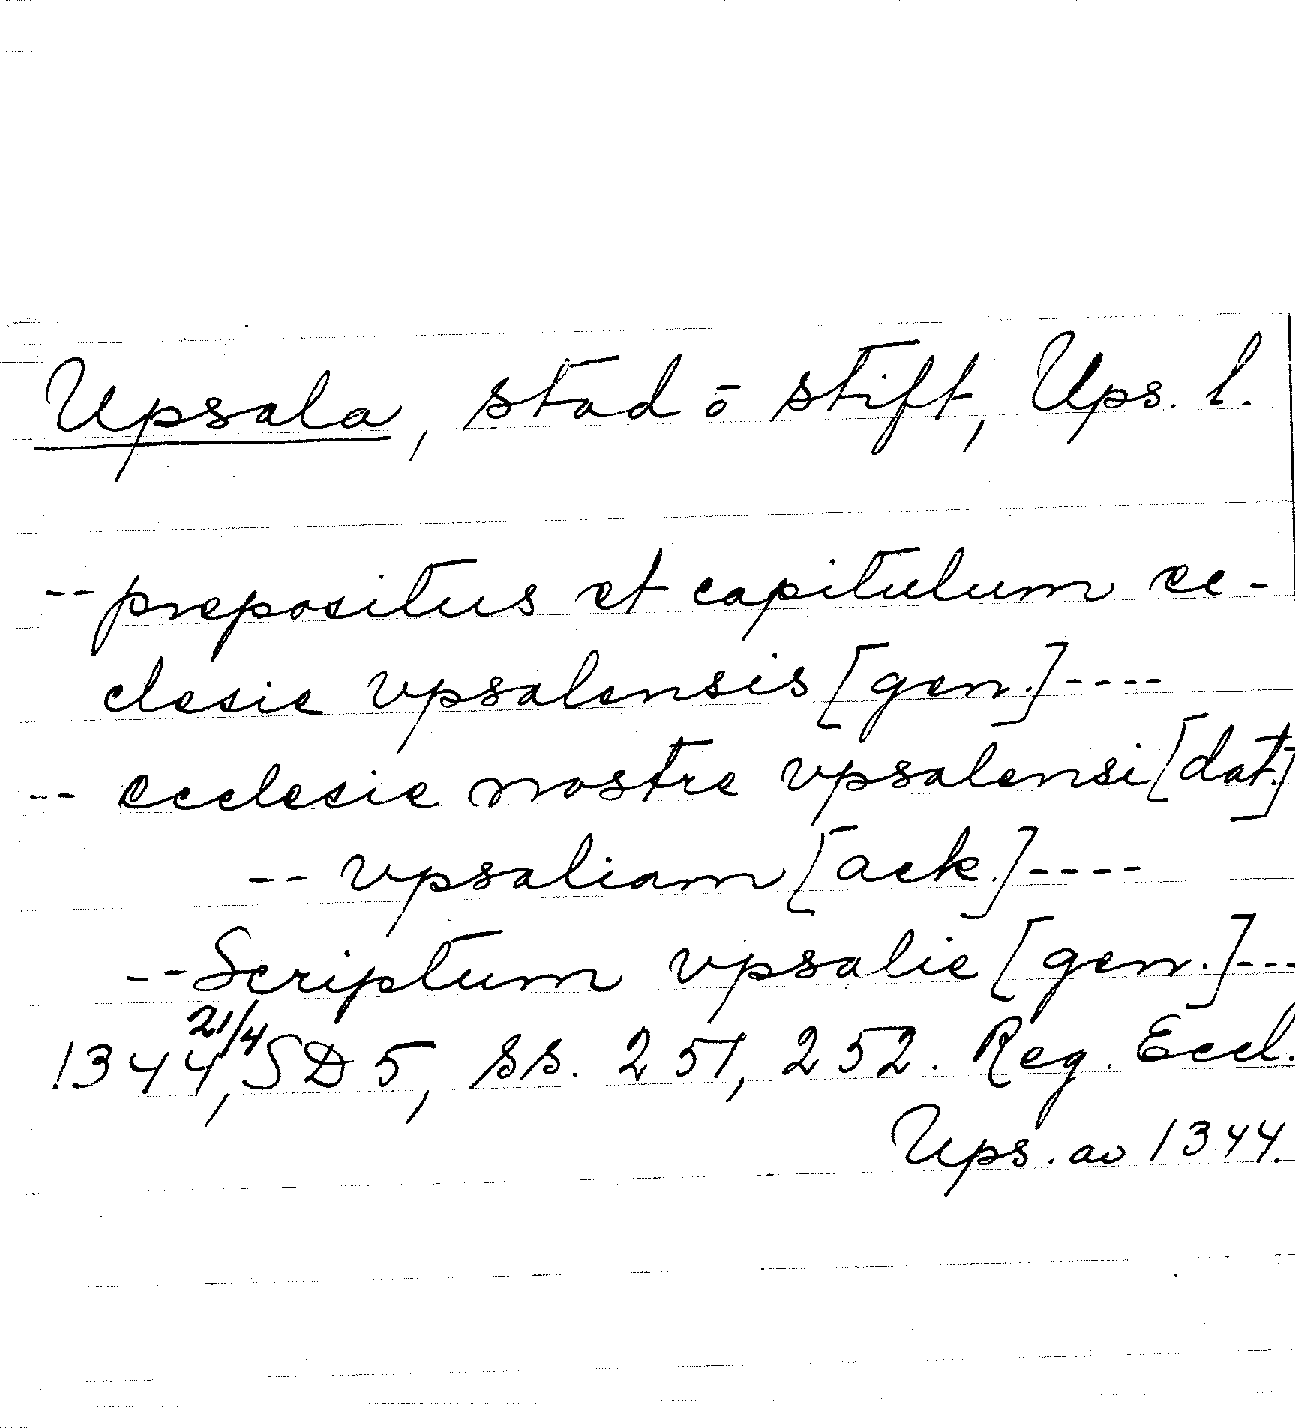 Upsala, stad ō stift, Ups. l.
-- prepositus et capitulum ec-
clesie vpsalensis [gen.] ----
-- ecclesie nostre vpsalensi [dat.]
-- vpsaliam [ack.] ----
-- Scriptum vpsalie [gen.] ---
1344 21/4, SD 5, ss. 251, 252. Reg. Eccl.
Ups. av 1344.